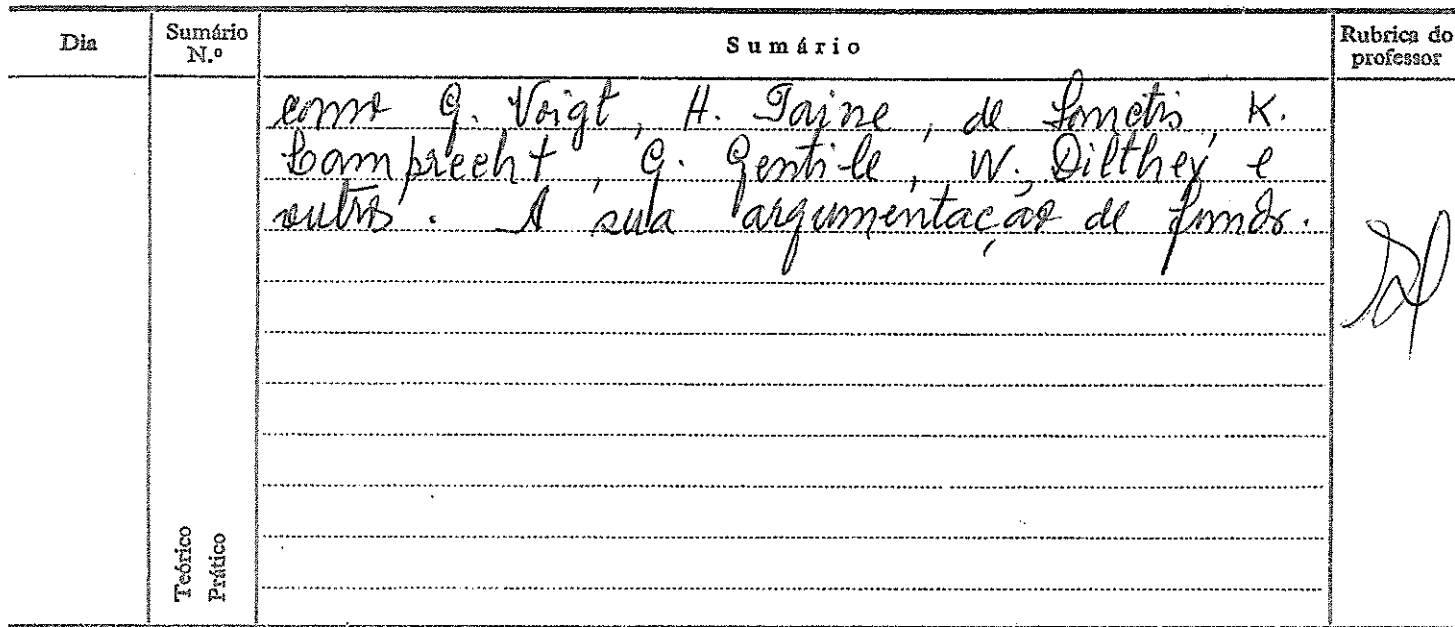 Dia
Sumário N.º
Sumário
Rubrica do professor
como G. Voigt, H. Taine, de Sanctis, K.
Lamprecht, G. Gentile, W. Dilthey e
outros. A sua argumentação de fundo.
Teórico
Prático